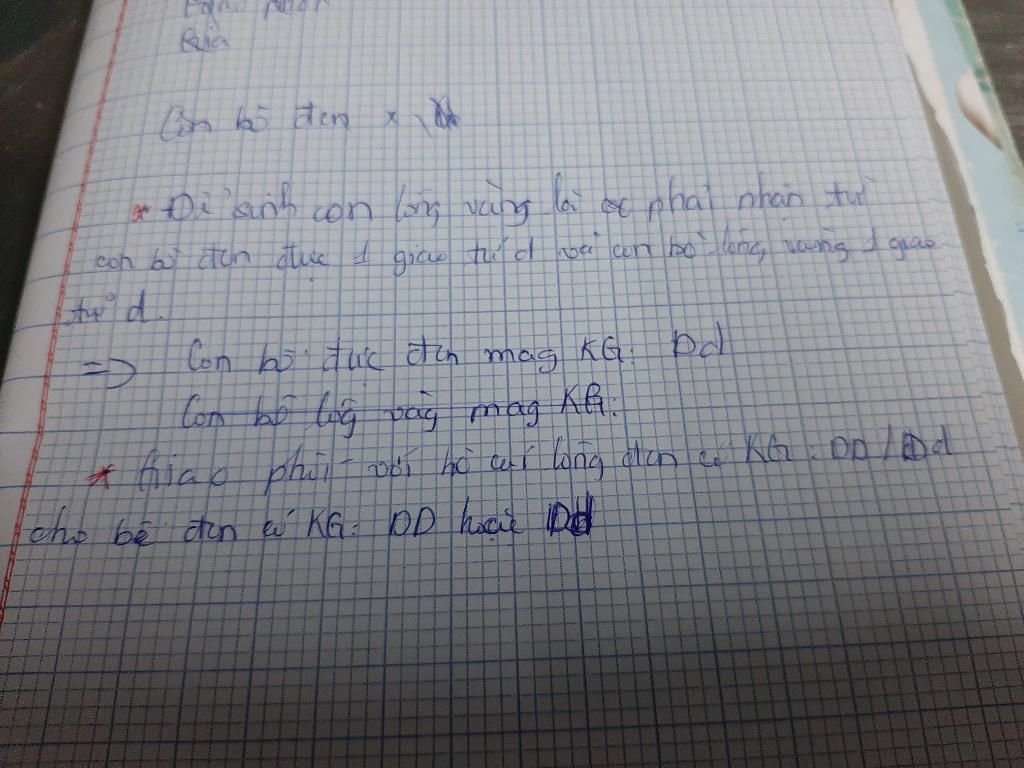 Con bò đen x
* Để sinh con lông vàng là phải nhận từ
con bò đen đực 1 giao tử d và con bò lông vàng 1 giao
tử d.
=> Con bò đực đen mag KG: Dd
Con bò lôg vàg mag KG:
* Giao phối với bò cái lông đen có KG: DD/Dd
cho bê đen có KG: DD hoặc Dd